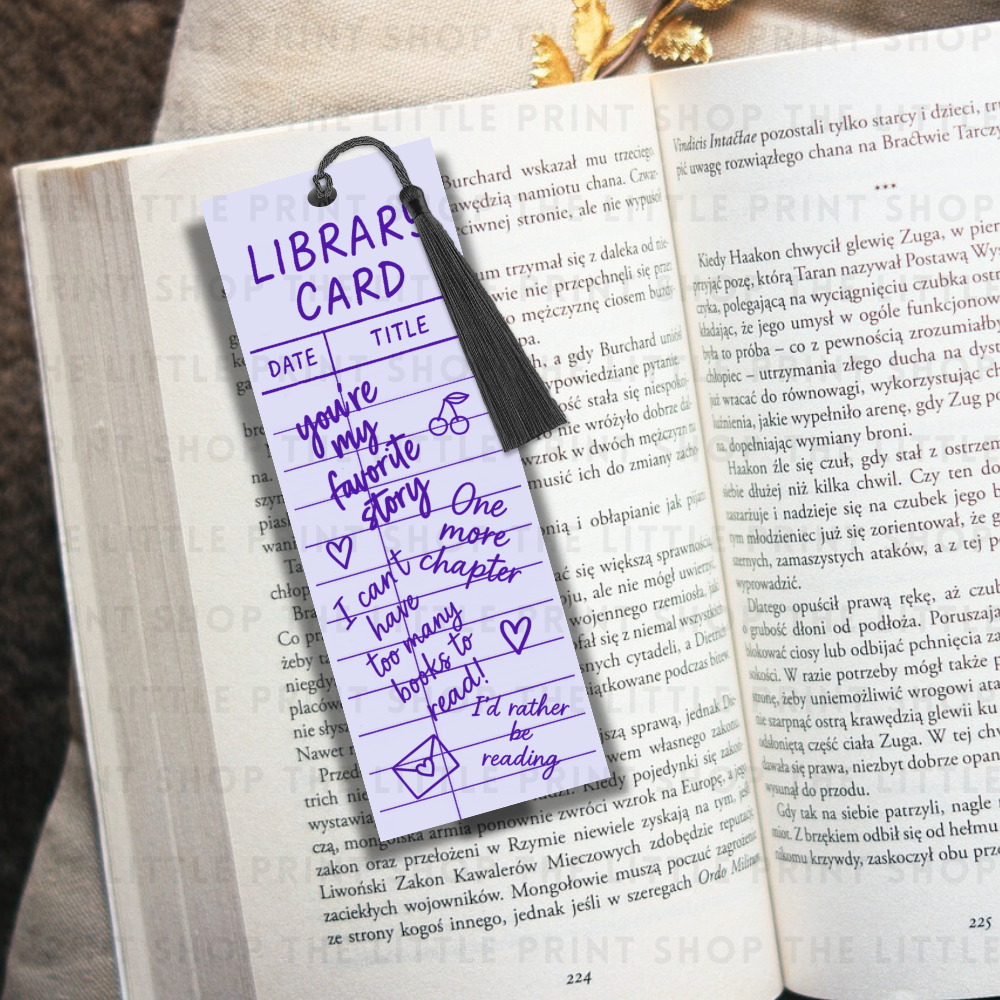 THE LITTLE PRINT SHOP
LIBRARY
CARD
DATE
TITLE
you're
my
favorite
story
One
more
chapter
I can't
have
too many
books to
read!
I'd rather
be
reading
Burchard wskazał mu trzeciego.
awędzią namiotu chana. Czwar-
eciwnej stronie, ale nie wypuścił
um trzymał się z daleka od nie-
wie nie przepchnęli się prze-
o mężczyznę ciosem buzdy-
pa.
h, a gdy Burchard uniósł
ypowiedziane pytanie.
ość stała się niespoko-
nie wróżyło dobrze dal-
wzrok w dwóch mężczyzn
musić ich do zmiany zacho-
nią i obłapianie jak pijani
ać się większą sprawnością
oju, ale nie mógł uwierzyć
wojennego rzemiosła, jak
ofał się z niemal wszystkich
snych cytadeli, a Dietrich
iątkowane podczas bitew
szą sprawą, jednak Die-
wem własnego zakonu.
du. Kiedy pojedynki się zakoń-
czą, mongolska armia ponownie zwróci wzrok na Europę, a jego
zakon oraz przełożeni w Rzymie niewiele zyskają na tym, jeśli
Liwoński Zakon Kawalerów Mieczowych zdobędzie reputację
zaciekłych wojowników. Mongołowie muszą poczuć zagrożenie
ze strony kogoś innego, jednak jeśli w szeregach Ordo Militum
224
Vindicis Intactae pozostali tylko starcy i dzieci, tru
pić uwagę rozwiązłego chana na Bractwie Tarczy
***
Kiedy Haakon chwycił glewię Zuga, w pier
przyjąć pozę, którą Taran nazywał Postawą Wy
czyka, polegającą na wyciągnięciu czubka ostr
kładając, że jego umysł w ogóle funkcjonow
była to próba – co z pewnością zrozumiałby
chłopiec – utrzymania złego ducha na dyst
już wracać do równowagi, wykorzystując ch
łużnienia, jakie wypełniło arenę, gdy Zug po
na, dopełniając wymiany broni.
Haakon źle się czuł, gdy stał z ostrzem
siebie dłużej niż kilka chwil. Czy ten do
zaszarżuje i nadzieje się na czubek jego b
tym młodzieniec już się zorientował, że g
szernych, zamaszystych ataków, a z tej p
wyprowadzić.
Dlatego opuścił prawą rękę, aż czub
o grubość dłoni od podłoża. Poruszaj
blokować ciosy lub odbijać pchnięcia za
sokości. W razie potrzeby mógł także p
stronę, żeby uniemożliwić wrogowi ata
nie szarpnąć ostrą krawędzią glewii ku
odsłoniętą część ciała Zuga. W tej chw
dawała się prawa, niezbyt dobrze opan
wysunął do przodu.
Gdy tak na siebie patrzyli, nagle
miot. Z brzękiem odbił się od hełmu
nikomu krzywdy, zaskoczył obu prze
225